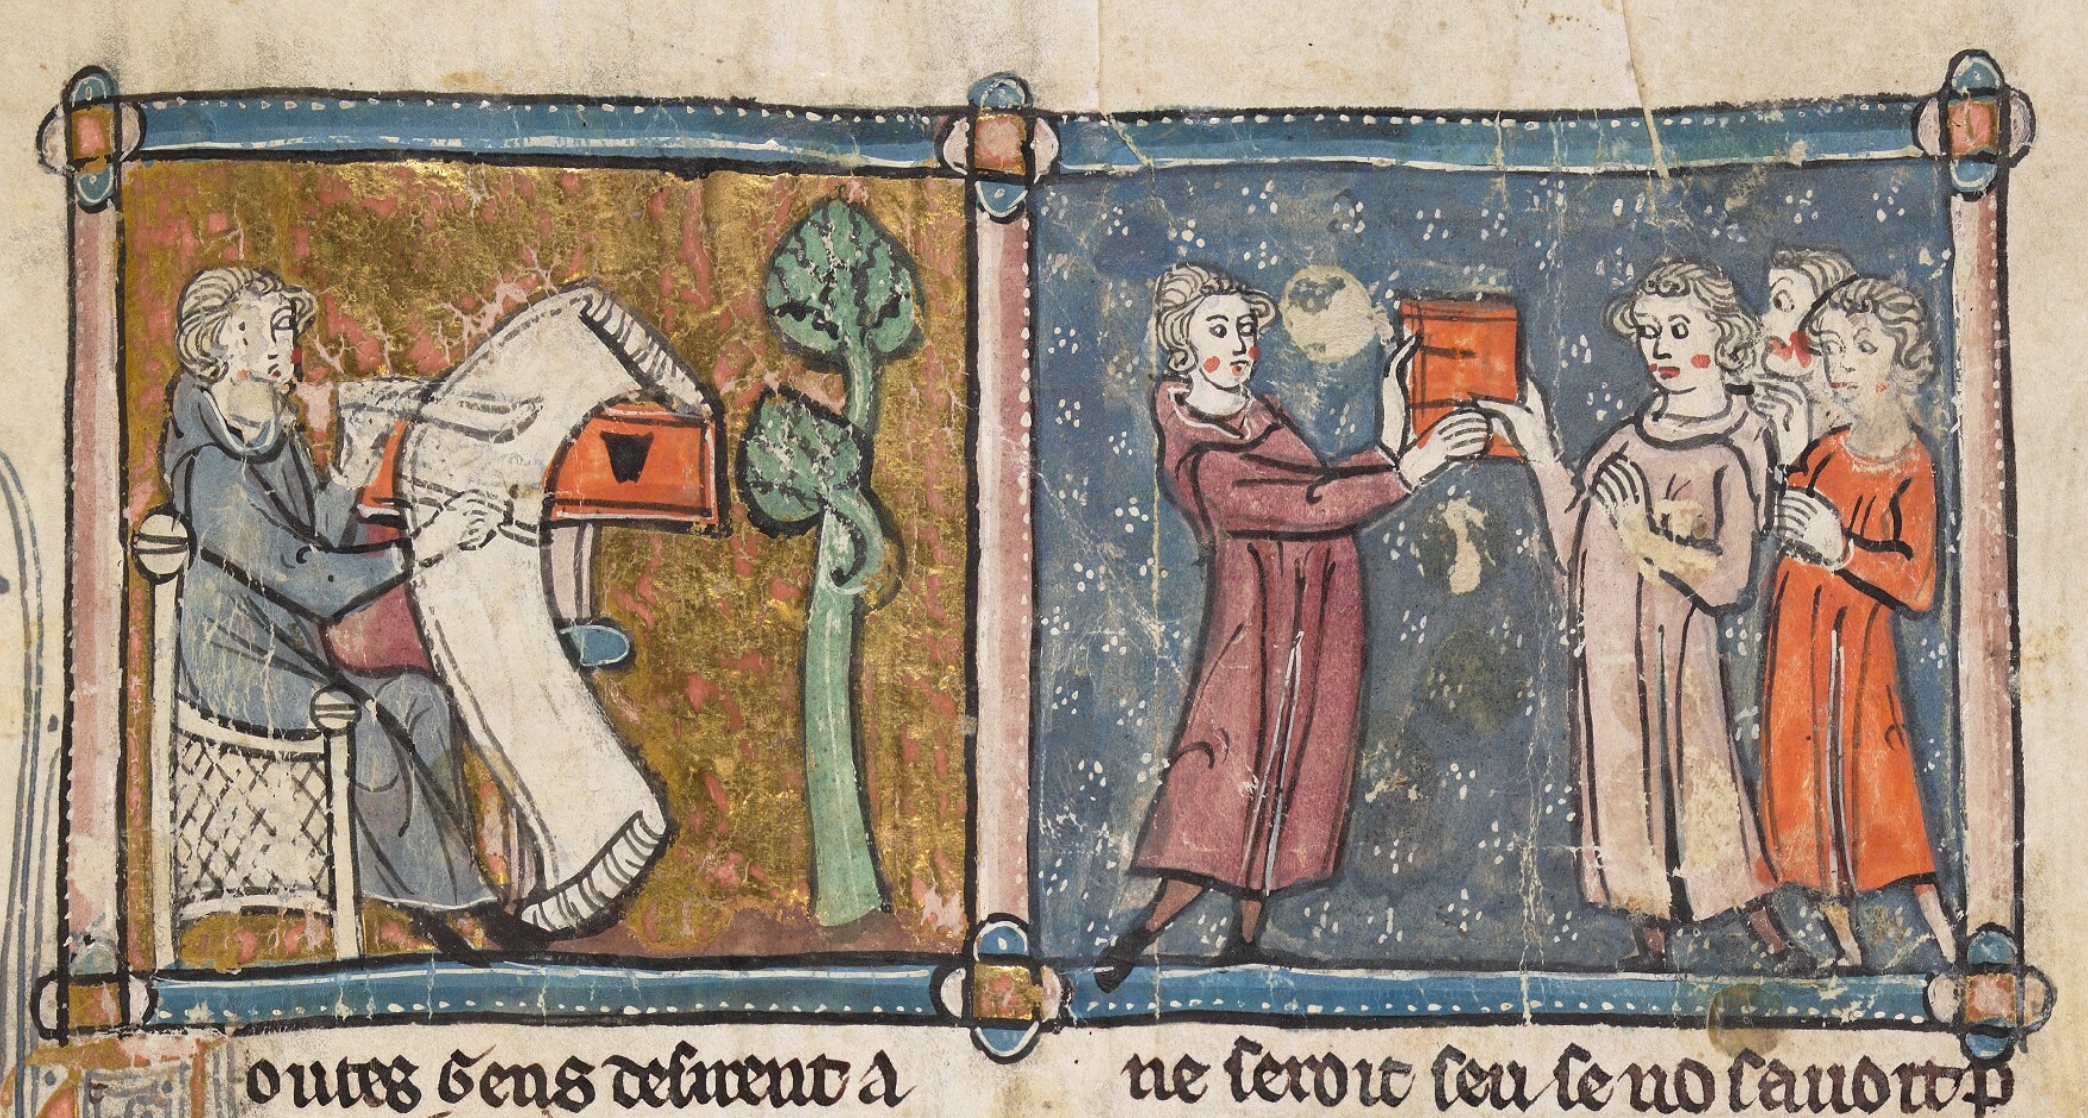 outes Gens desirent a
ne seroit seu se no savoit p